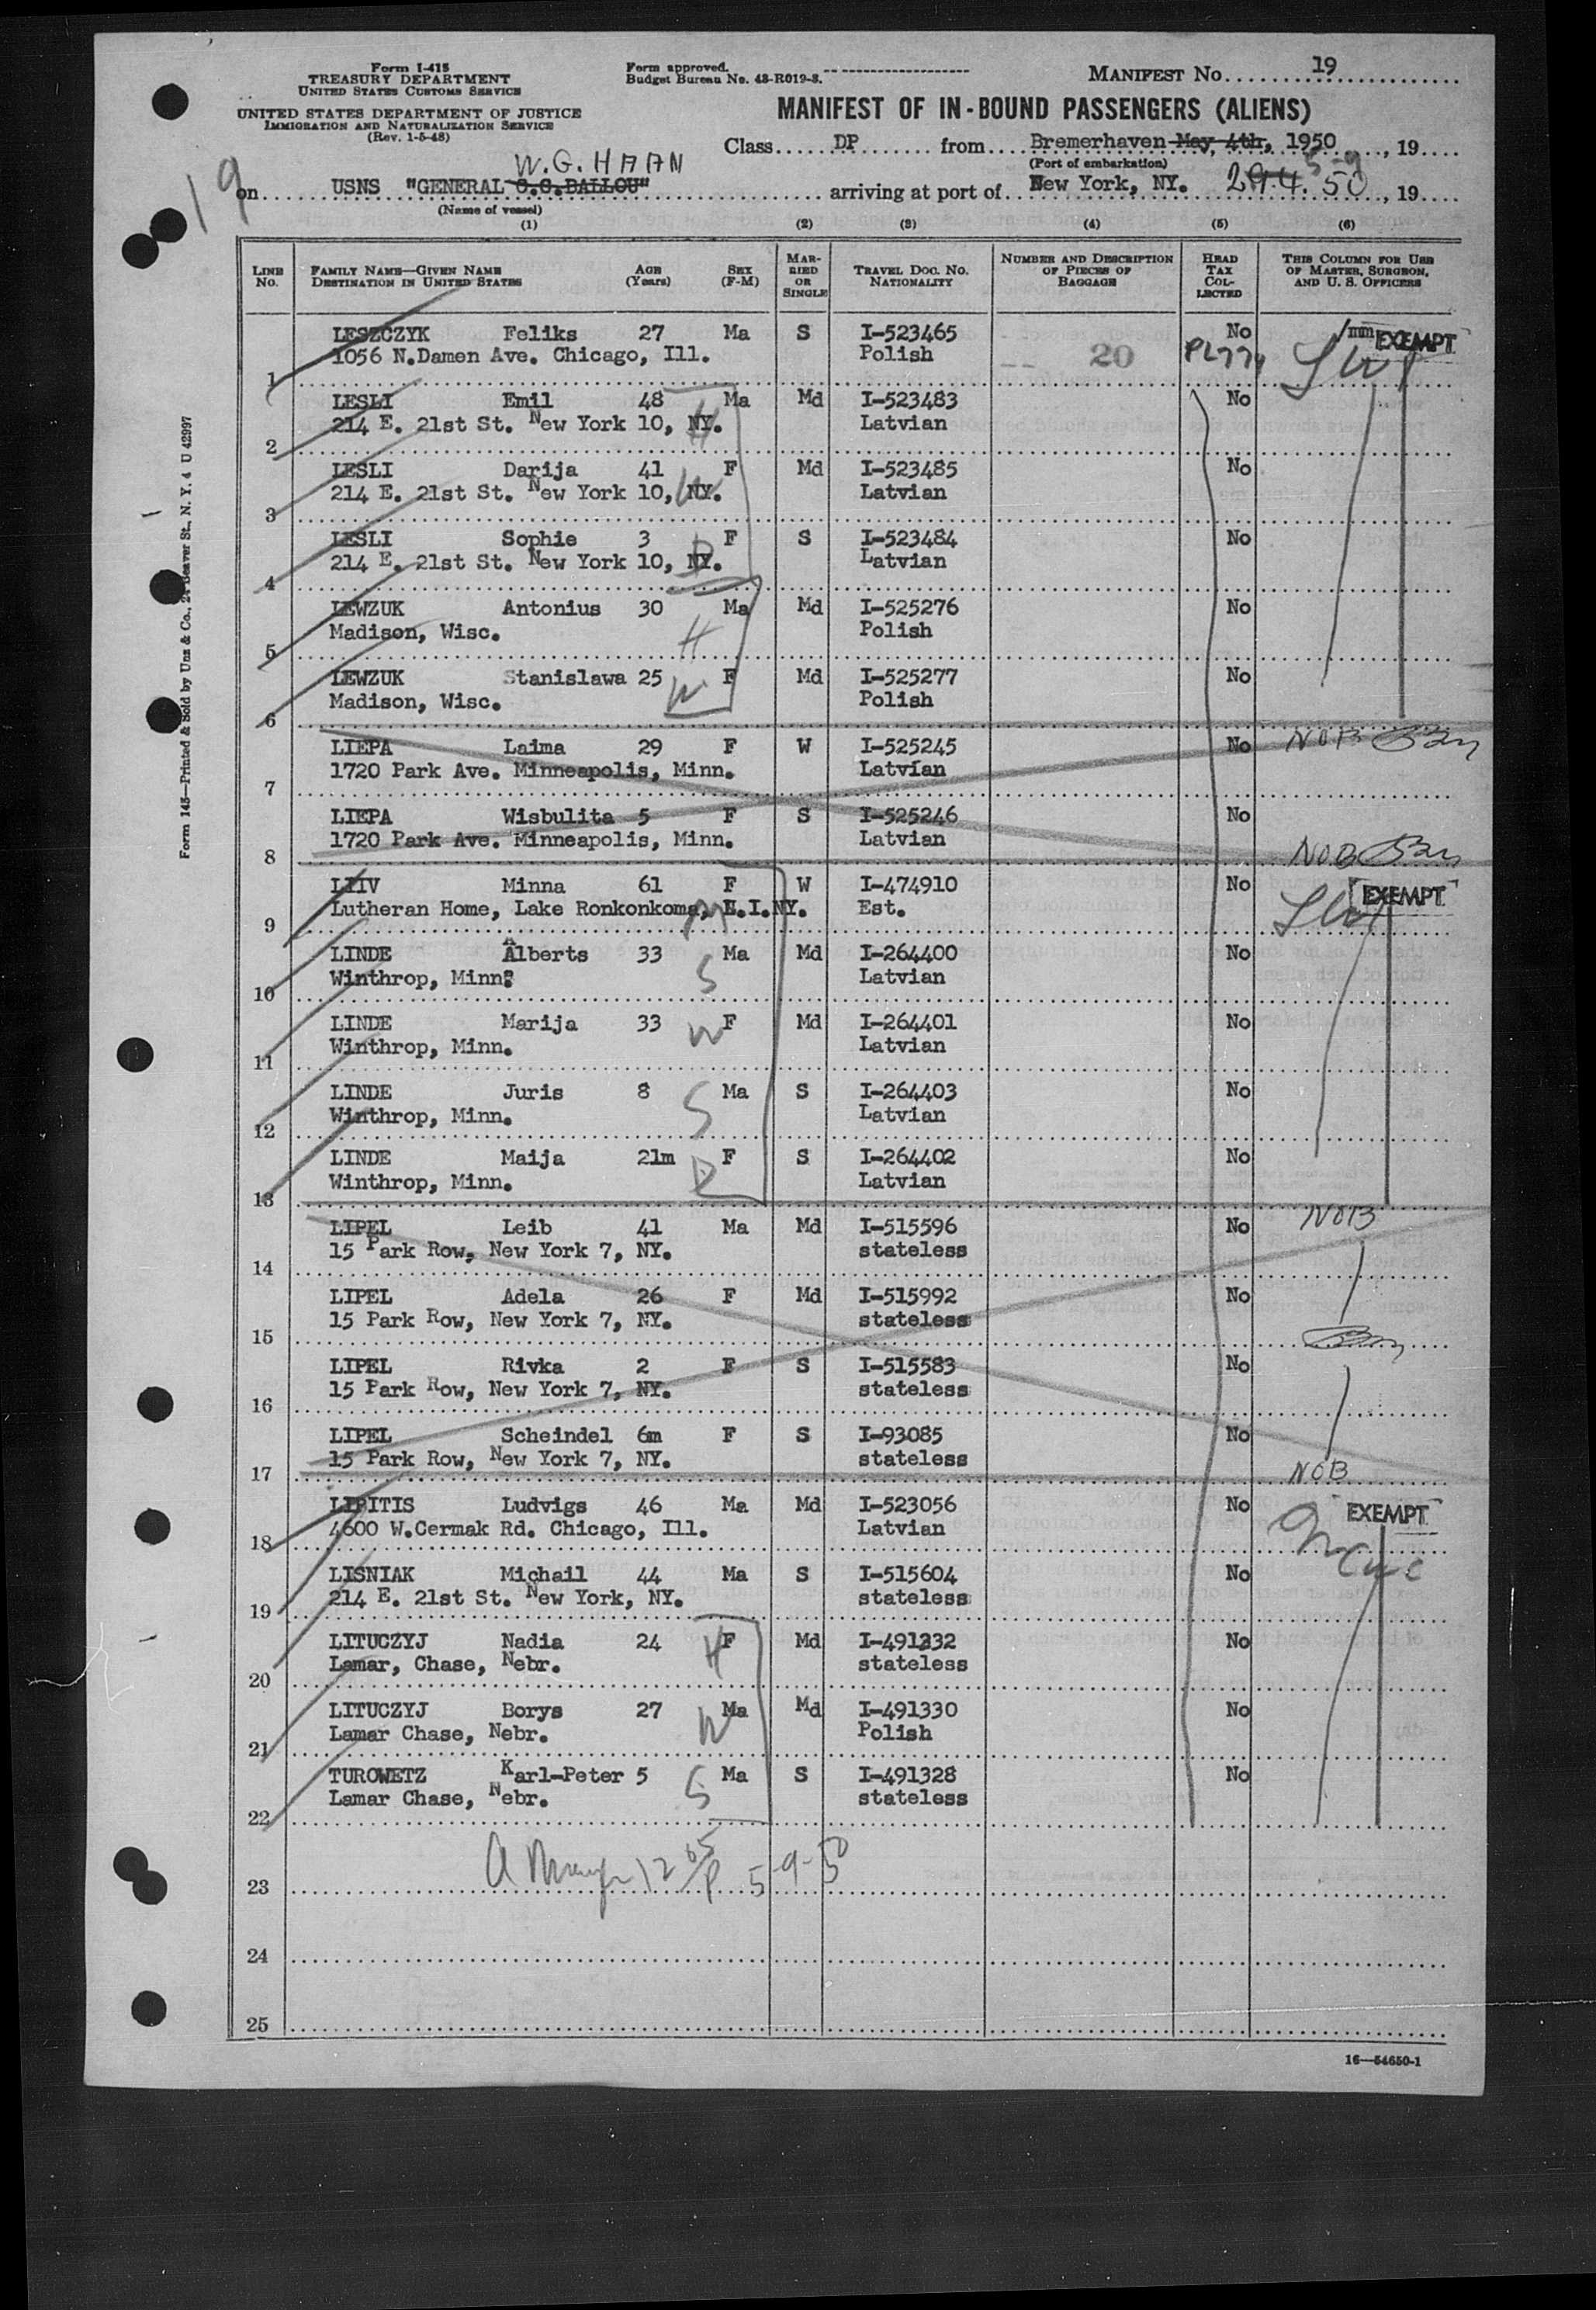 Form I-415
TREASURY DEPARTMENT
UNITED STATES CUSTOMS SERVICE
UNITED STATES DEPARTMENT OF JUSTICE
IMMIGRATION AND NATURALIZATION SERVICE
(Rev. 1-5-48)
Form approved.
Budget Bureau No. 43-R019-3.
MANIFEST No. 19
MANIFEST OF IN-BOUND PASSENGERS (ALIENS)
Class DP from Bremerhaven May, 4th, 1950, 19
(Port of embarkation)
W.G. HAAN
19
on USNS "GENERAL C.C.BALLOU" arriving at port of New York, NY. 5-9 50, 19
(Name of vessel)
(1) (2) (3) (4) (5) (6)
LINE No. FAMILY NAME—GIVEN NAME DESTINATION IN UNITED STATES AGE (Years) SEX (F-M) MARRIED OR SINGLE TRAVEL DOC. NO. NATIONALITY NUMBER AND DESCRIPTION OF PIECES OF BAGGAGE HEAD TAX COLLECTED THIS COLUMN FOR USE OF MASTER, SURGEON, AND U. S. OFFICERS
LESZCZYK Feliks 27 Ma S I-523465 No EXEMPT
1056 N.Damen Ave. Chicago, Ill. Polish 20
1
LESLI Emil 48 Ma Md I-523483 No
214 E. 21st St. New York 10, NY. H Latvian
2
LESLI Darija 41 F Md I-523485 No
214 E. 21st St. New York 10, NY. W Latvian
3
LESLI Sophie 3 F S I-523484 No
214 E. 21st St. New York 10, NY. D Latvian
4
LEWZUK Antonius 30 Ma Md I-525276 No
Madison, Wisc. H Polish
5
LEWZUK Stanislawa 25 F Md I-525277 No
Madison, Wisc. W Polish
6
LIEPA Laima 29 F W I-525245 No NOB
1720 Park Ave. Minneapolis, Minn. Latvian
7
LIEPA Wisbulita 5 F S I-525246 No
1720 Park Ave. Minneapolis, Minn. Latvian NOB
8
LIIV Minna 61 F W I-474910 No EXEMPT
Lutheran Home, Lake Ronkonkoma, L.I.NY. M Est.
9
LINDE Alberts 33 Ma Md I-264400 No
Winthrop, Minn. S Latvian
10
LINDE Marija 33 F Md I-264401 No
Winthrop, Minn. W Latvian
11
LINDE Juris 8 Ma S I-264403 No
Winthrop, Minn. S Latvian
12
LINDE Maija 21m F S I-264402 No
Winthrop, Minn. D Latvian
13
LIPEL Leib 41 Ma Md I-515596 No NOB
15 Park Row, New York 7, NY. stateless
14
LIPEL Adela 26 F Md I-515992 No
15 Park Row, New York 7, NY. stateless
15
LIPEL Rivka 2 F S I-515583 No
15 Park Row, New York 7, NY. stateless
16
LIPEL Scheindel 6m F S I-93085 No
15 Park Row, New York 7, NY. stateless NOB
17
LIPITIS Ludvigs 46 Ma Md I-523056 No EXEMPT
4600 W.Cermak Rd. Chicago, Ill. Latvian
18
LISNIAK Michail 44 Ma S I-515604 No
214 E. 21st St. New York, NY. stateless
19
LITUCZYJ Nadia 24 F Md I-491332 No
Lamar, Chase, Nebr. H stateless
20
LITUCZYJ Borys 27 Ma Md I-491330 No
Lamar Chase, Nebr. W Polish
21
TUROWETZ Karl-Peter 5 Ma S I-491328 No
Lamar Chase, Nebr. S stateless
22
5-9-50
23
24
25
16—54650-1
Form 145—Printed & Sold by Unz & Co., 24 Beaver St., N. Y. 4 U 42997